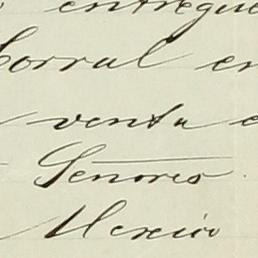 entregue
Corral en
venta e
Señores
Mexico